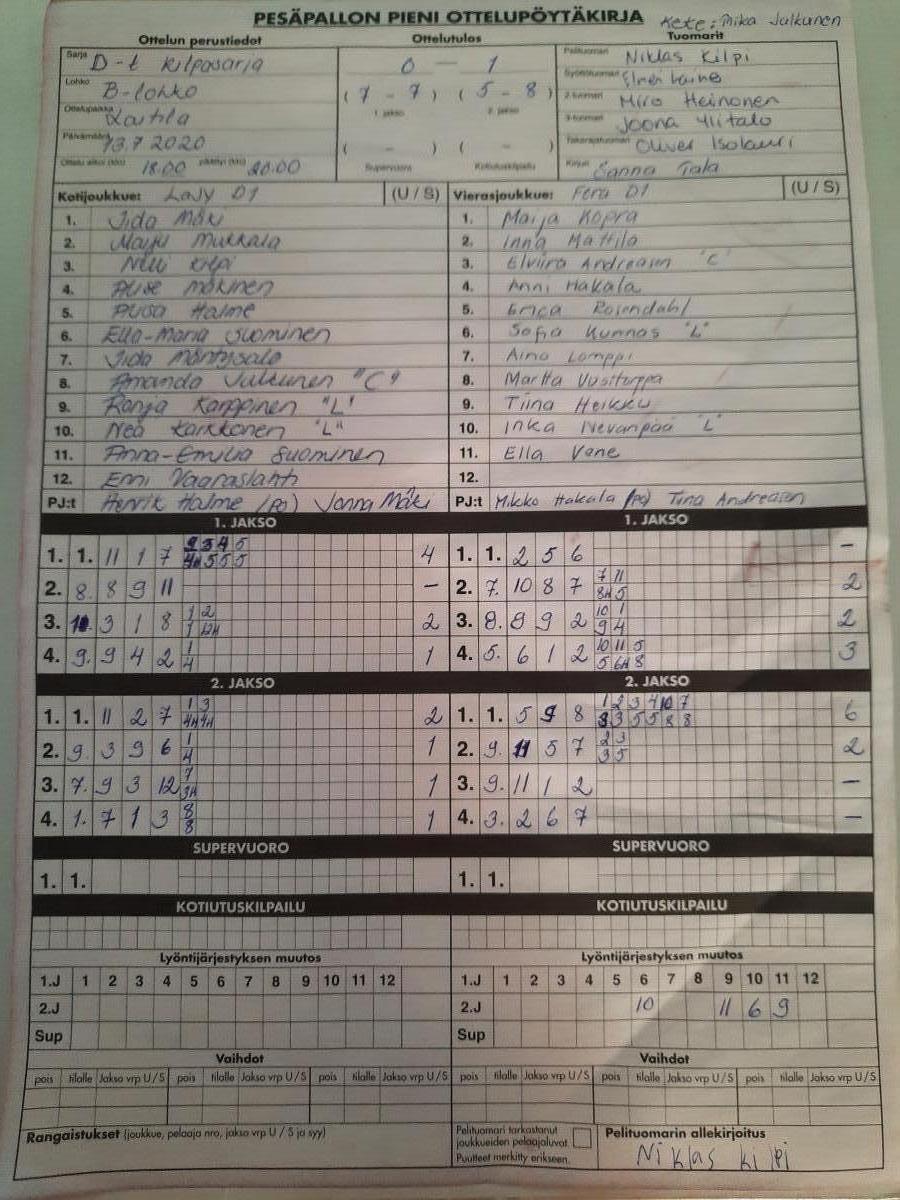 PESÄPALLON PIENI OTTELUPÖYTÄKIRJA
Kete: Mika Julkunen
Ottelun perustiedot
Ottelutulos
Tuomarit
Sarja D-t kilpasarja
Lohko B-lohko
Ottelupaikka Laitila
Päivämäärä 13.7 2020
Ottelu alkoi (klo) 18.00 päättyi (klo) 20.00
0 - 1
( 7 - 7 ) ( 5 - 8 )
1. jakso 2. jakso
( - ) ( - )
Supervuoro Kotiutuskilpailu
Pelituomari Niklas Kilpi
Syöttötuomari Elmeri Laine
2-tuomari Miro Heinonen
3-tuomari Joona Ylitalo
Takarajatuomari Oliver Isolauri
Kirjuri Sanna Tiala
Kotijoukkue: LaJy D1 (U / S)
1. Iida Mäki
2. Maiju Mukkala
3. Nelli Kilpi
4. Alise Mäkinen
5. Aliisa Halme
6. Ella-Maria Suominen
7. Iida Mäntysalo
8. Amanda Julkunen "C"
9. Ronja Karppinen "L"
10. Nea Karkkonen "L"
11. Anna-Emilia Suominen
12. Emi Vaaraslahti
PJ:t Henrik Halme (PO) Jonna Mäki
Vierasjoukkue: Fera D1 (U / S)
1. Maija Kopra
2. Inna Mattila
3. Elviira Andreasen "C"
4. Anni Hakala
5. Erica Rosendahl
6. Sofia Kunnas "L"
7. Aino Lamppi
8. Martta Uusiturppa
9. Tiina Heikku
10. Inka Nevanpää "L"
11. Ella Vane
12.
PJ:t Mikko Hakala (PO) Tiina Andreasen
1. JAKSO
1. 1. 11 1 7 2 3 4 5 4
4H 5 5 5
2. 8. 8 9 11 -
3. 11. 3 1 8 1 2 2
1 12H
4. 9. 9 4 2 1 1
4
1. JAKSO
1. 1. 2 5 6 -
2. 7. 10 8 7 7 11 2
8H 5
3. 8. 8 9 2 10 1 2
9 4
4. 5. 6 1 2 10 11 5 3
5 6H 8
2. JAKSO
1. 1. 11 2 7 1 3 2
4H 4H
2. 9. 3 9 6 1 1
4
3. 7. 9 3 12 7 1
3H
4. 1. 7 1 3 8 1
8
2. JAKSO
1. 1. 5 9 8 1 2 3 4 10 7 6
3 3 5 5 8 8
2. 9. 11 5 7 2 3 2
3 5
3. 9. 11 1 2 -
4. 3. 2 6 7 -
SUPERVUORO
1. 1.
SUPERVUORO
1. 1.
KOTIUTUSKILPAILU
KOTIUTUSKILPAILU
Lyöntijärjestyksen muutos
1.J 1 2 3 4 5 6 7 8 9 10 11 12
2.J
Sup
Lyöntijärjestyksen muutos
1.J 1 2 3 4 5 6 7 8 9 10 11 12
2.J 10 11 6 9
Sup
Vaihdot
pois tilalle Jakso vrp U / S pois tilalle Jakso vrp U / S pois tilalle Jakso vrp U / S
Vaihdot
pois tilalle Jakso vrp U / S pois tilalle Jakso vrp U / S pois tilalle Jakso vrp U / S
Rangaistukset (joukkue, pelaaja nro, jakso vrp U / S ja syy)
Pelituomari tarkastanut
joukkueiden pelaajaluvat.
Puutteet merkitty erikseen.
Pelituomarin allekirjoitus
Niklas Kilpi